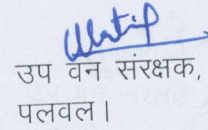 उप वन संरक्षक,
पलवल।